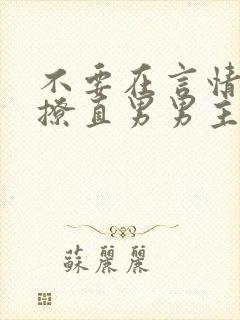 不要在言情
撩直男男主
蘇麗麗